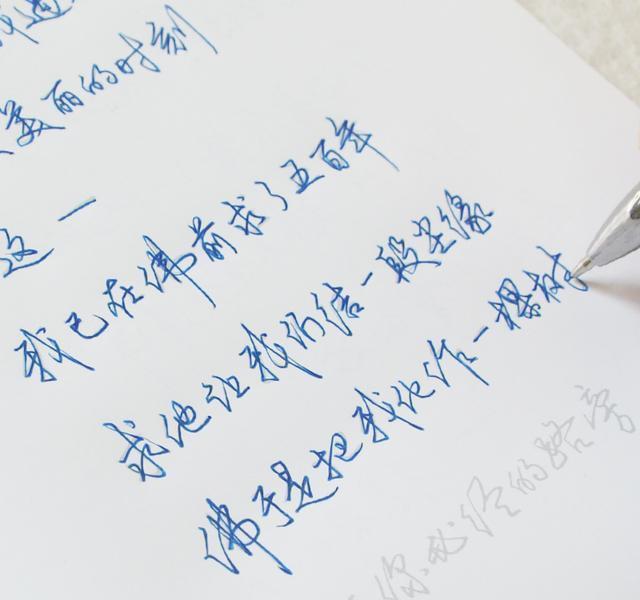 美丽的时刻
这—
我已在佛前求了五百年
求他让我们结一段尘缘
佛于是把我化作一棵树
在你必经的路旁